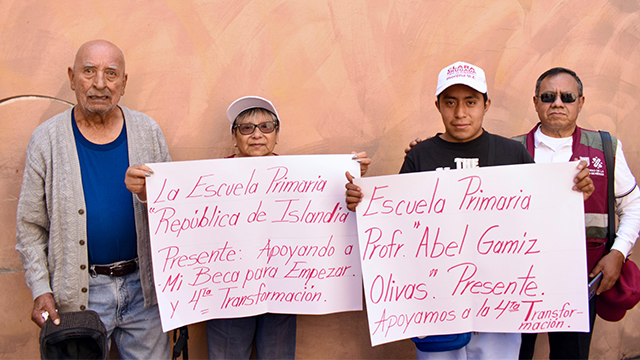 La Escuela Primaria
"República de Islandia
Presente: Apoyando a
Mi Beca para Empezar.
y 4ta Transformación.
CLARA
THE
Escuela Primaria
Profr. "Abel Gamiz
Olivas". Presente.
Apoyamos a la 4Ta Transfor-
mación.